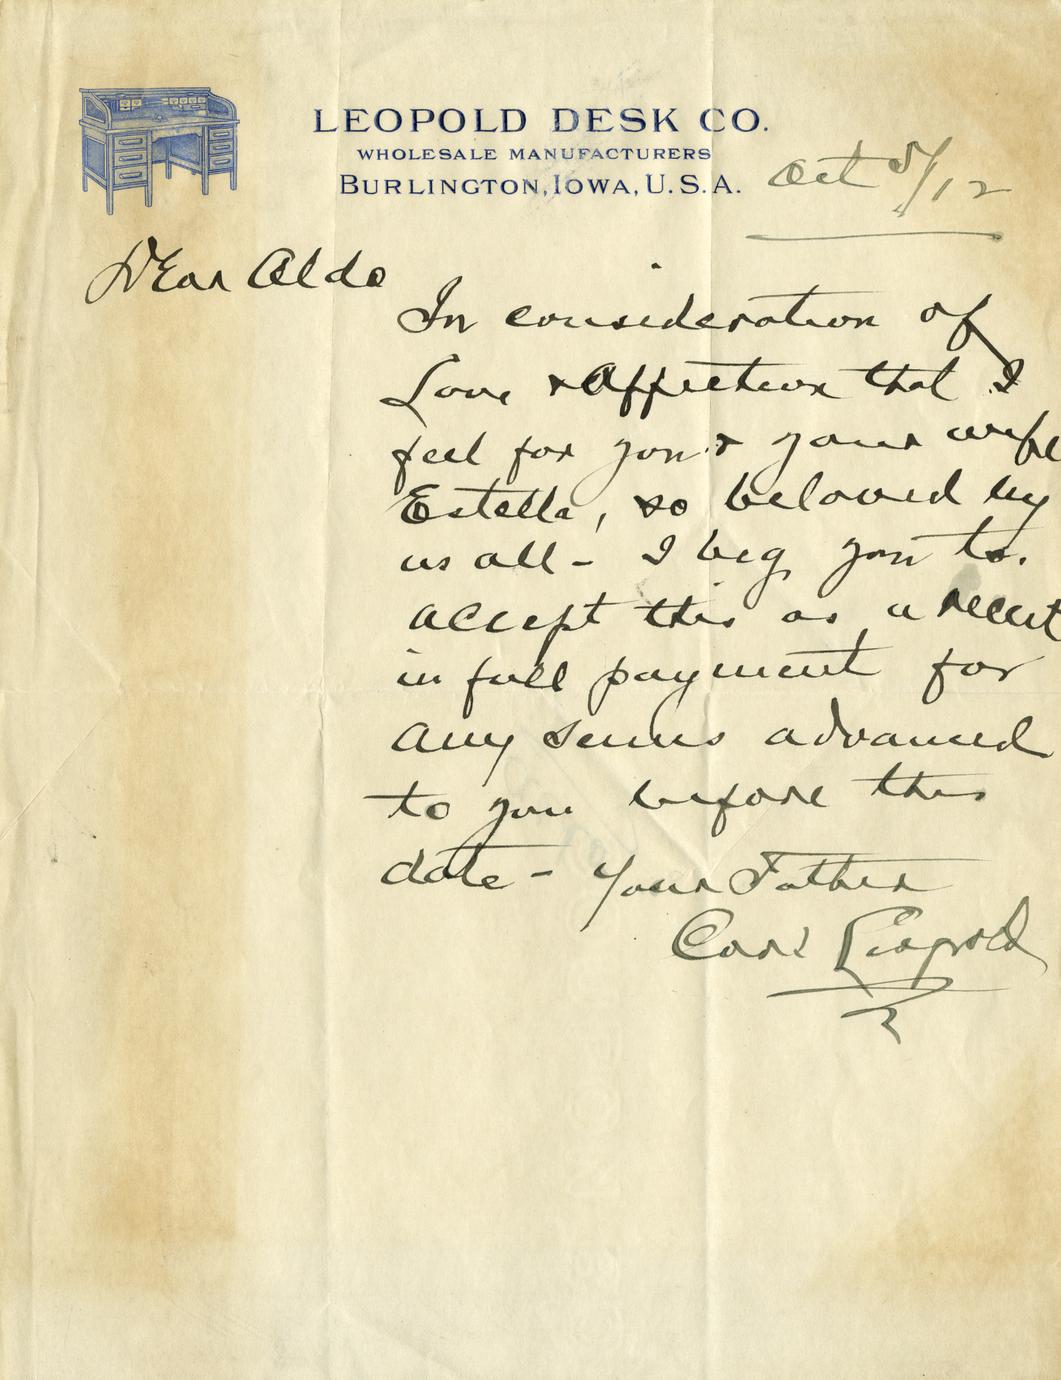 LEOPOLD DESK CO.
WHOLESALE MANUFACTURERS
BURLINGTON, IOWA, U.S.A.
Oct 5/12
Dear Aldo
In consideration of
Love & Affection that I
feel for you & your wife
Estella, so beloved by
us all - I beg you to
accept this as a receit
in full payment for
any sums advanced
to you before this
date - Your Father
Carl Leopold